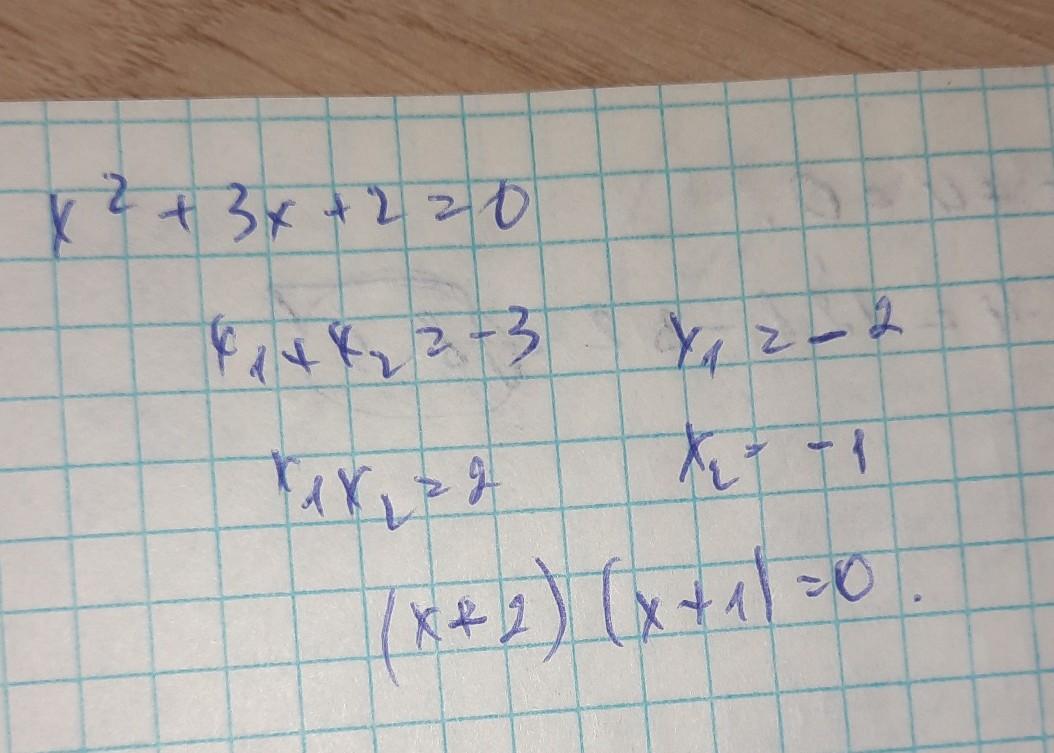 x² + 3x + 2 = 0
x₁ + x₂ = -3 x₁ = -2
x₁x₂ = 2 x₂ = -1
(x + 2) (x + 1) = 0.